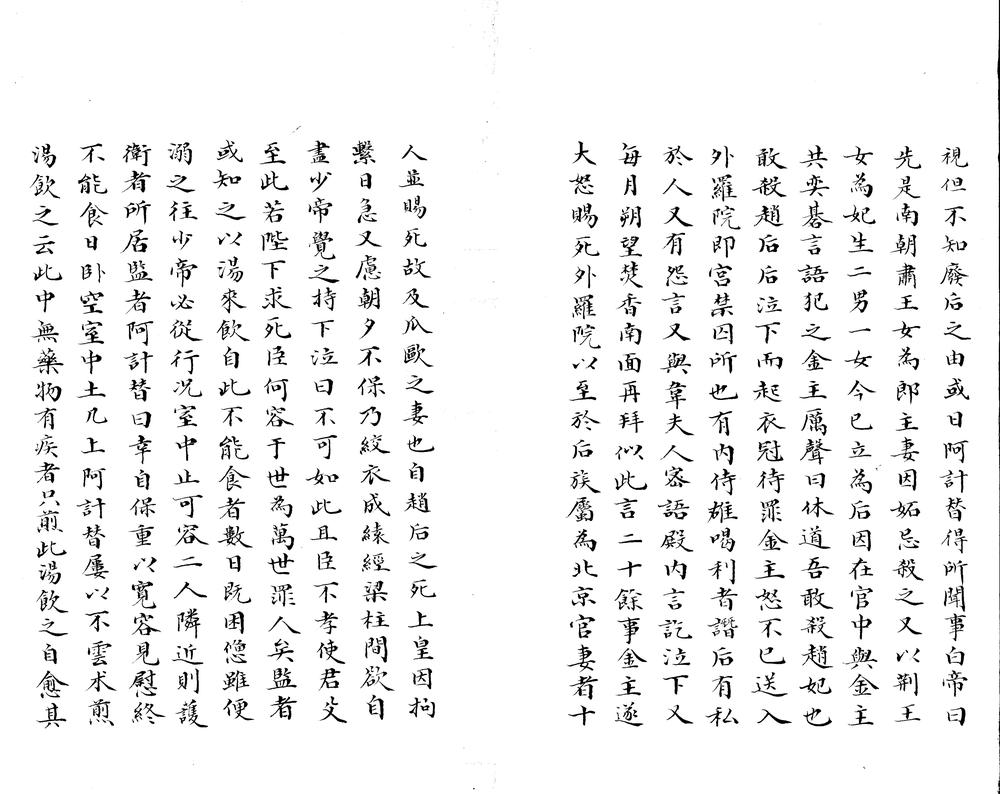 視但不知廢后之由或日阿計替得所聞事白帝曰
先是南朝肅王女為郎主妻因妬忌殺之又以荆王
女為妃生二男一女今已立為后因在宮中與金主
共奕碁言語犯之金主厲聲曰休道吾敢殺趙妃也
敢殺趙后后泣下而起衣冠待罪金主怒不已送入
外羅院即宮禁囚所也有內侍雄喝利者譖后有私
於人又有怨言又與韋夫人密語殿內言訖泣下又
每月朔望焚香南面再拜似此言二十餘事金主遂
大怒賜死外羅院以至於后族屬為北京官妻者十
人並賜死故及瓜歐之妻也自趙后之死上皇因拘
繫日急又慮朝夕不保乃絞衣成縤經梁柱間欲自
盡少帝覺之持下泣曰不可如此且臣不孝使君父
至此若陛下求死臣何容于世為萬世罪人矣監者
或知之以湯來飲自此不能食者數日旣困憊雖便
溺之往少帝必從行况室中止可容二人隣近則護
衛者所居監者阿計替曰幸自保重以寬容見慰終
不能食日卧空室中土几上阿計替屢以不雲术煎
湯飲之云此中無藥物有疾者只煎此湯飲之自愈其